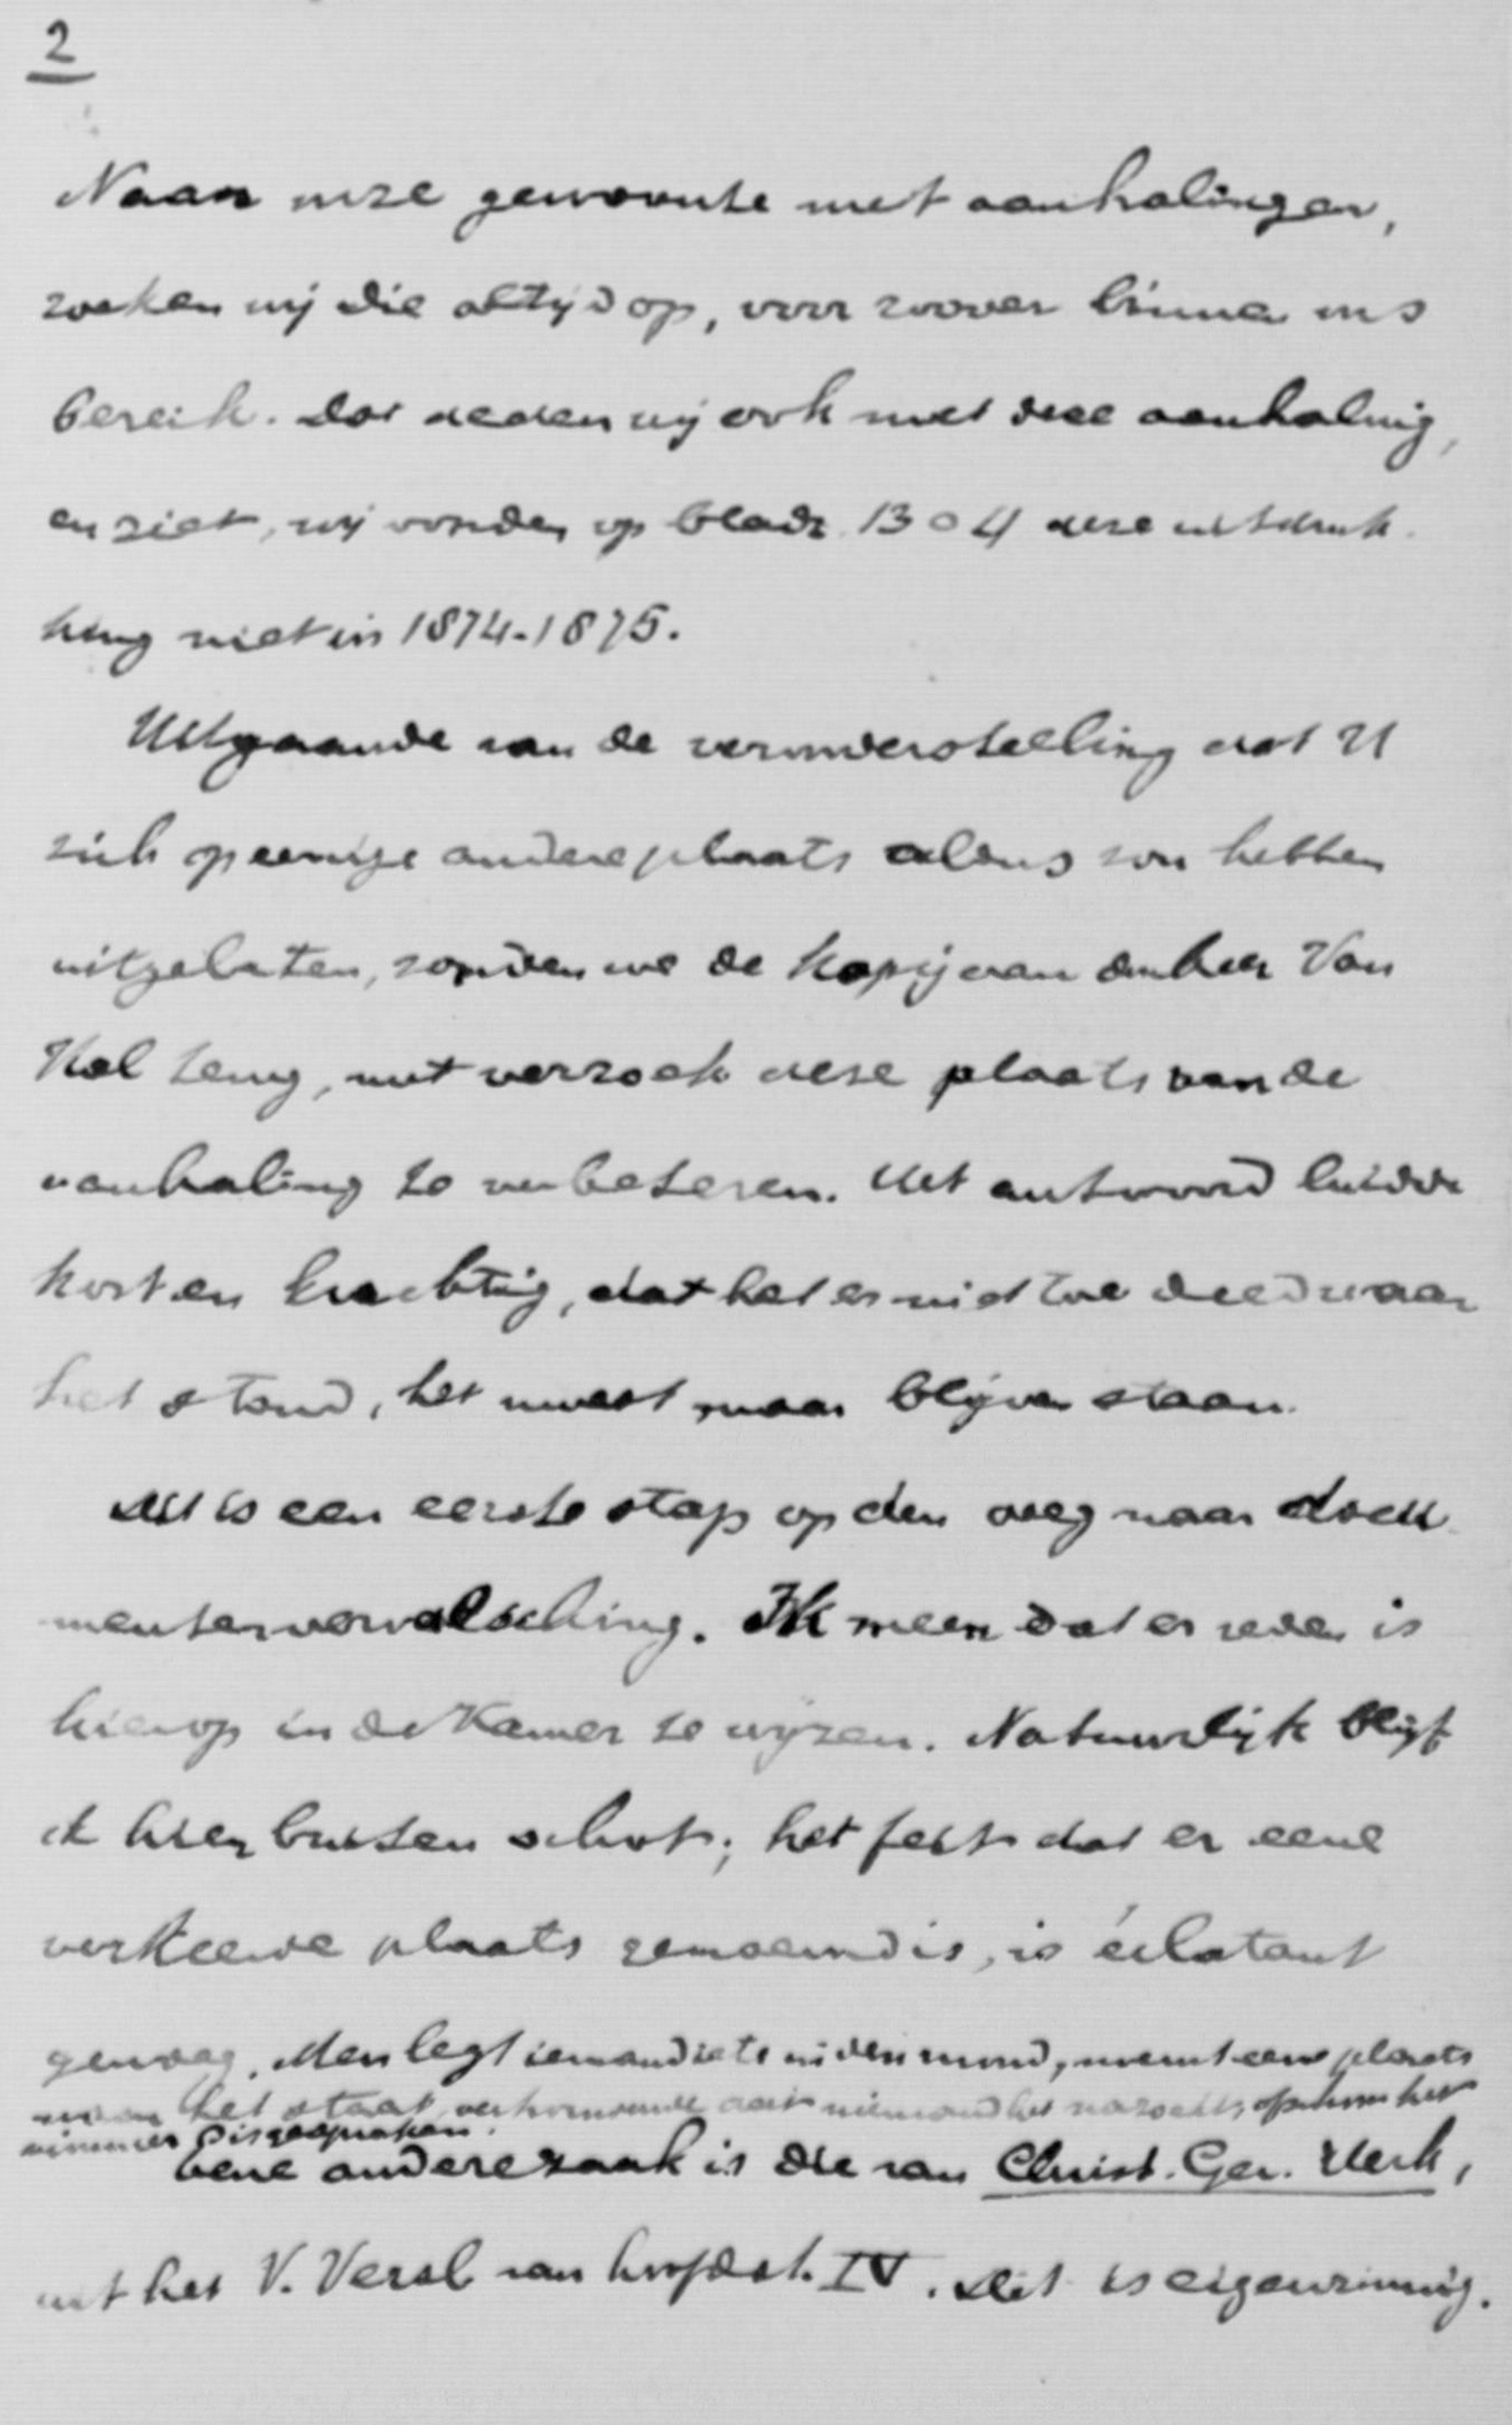 2
Naar onze gewoonte met aanhalingen,
zoeken wij die altijd op, voor zoover binnen ons
bereik. Dat deden wij ook met deze aanhaling,
en ziet, wij vonden op bladz. 1304 deze uitdruk-
king niet in 1874-1875.
Uitgaande van de veronderstelling dat U
zich op eenige andere plaats aldus zou hebben
uitgelaten, zonden we de kopij van den heer Van
Kol terug, met verzoek deze plaats van de
aanhaling te verbeteren. Het antwoord luidde
kort en krachtig, dat het er niet toe deed waar
het stond, het moest maar blijven staan.
Dit is een eerste stap op den weg naar docu-
mentenvervalsching. Ik meen dat er reden is
hierop in de Kamer te wijzen. Natuurlijk blijf
ik hier buiten schot; het feit dat er eene
verkeerde plaats genoemd is, is éclatant
genoeg. Men legt iemand iets in den mond, noemt eene plaats
waar het staat, vertrouwende dat niemand het nazoekt, ofschoon het
nimmer is gesproken.
Eene andere zaak is die van Christ. Ger. Kerk,
uit het V. Versl van hoofdst. IV. Dit is eigenzinnig.